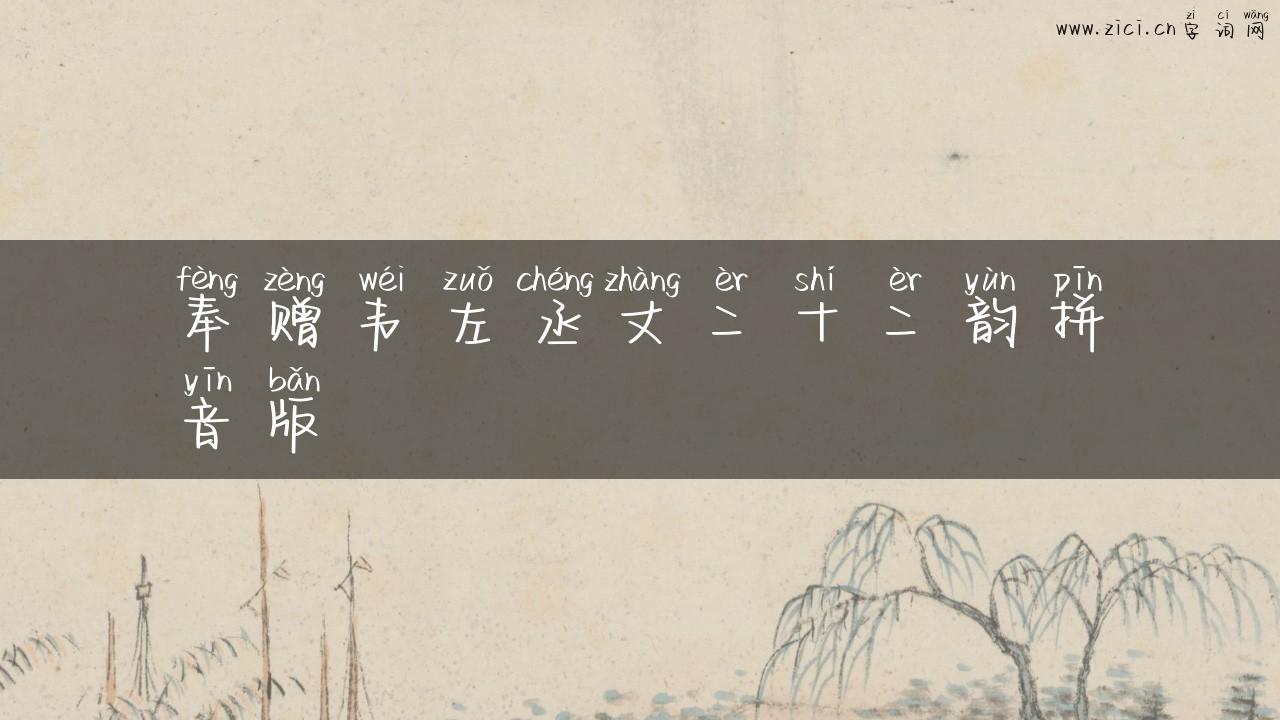 zì cí wǎng
www.zici.cn 字 词 网
fèng zèng wéi zuǒ chéng zhàng èr shí èr yùn pīn
奉 赠 韦 左 丞 丈 二 十 二 韵 拼
yīn bǎn
音 版